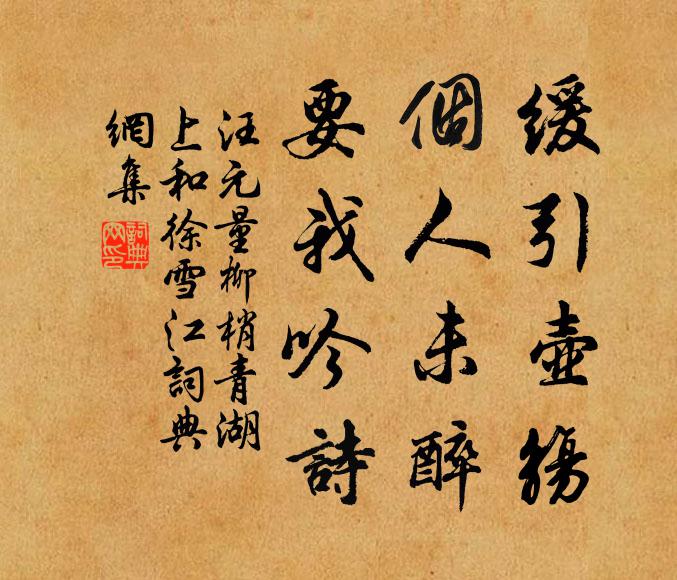 緩引壺觴
個人未醉
要我吟詩
汪元量柳梢青湖
上和徐雪江詞典
網集
詞典網印